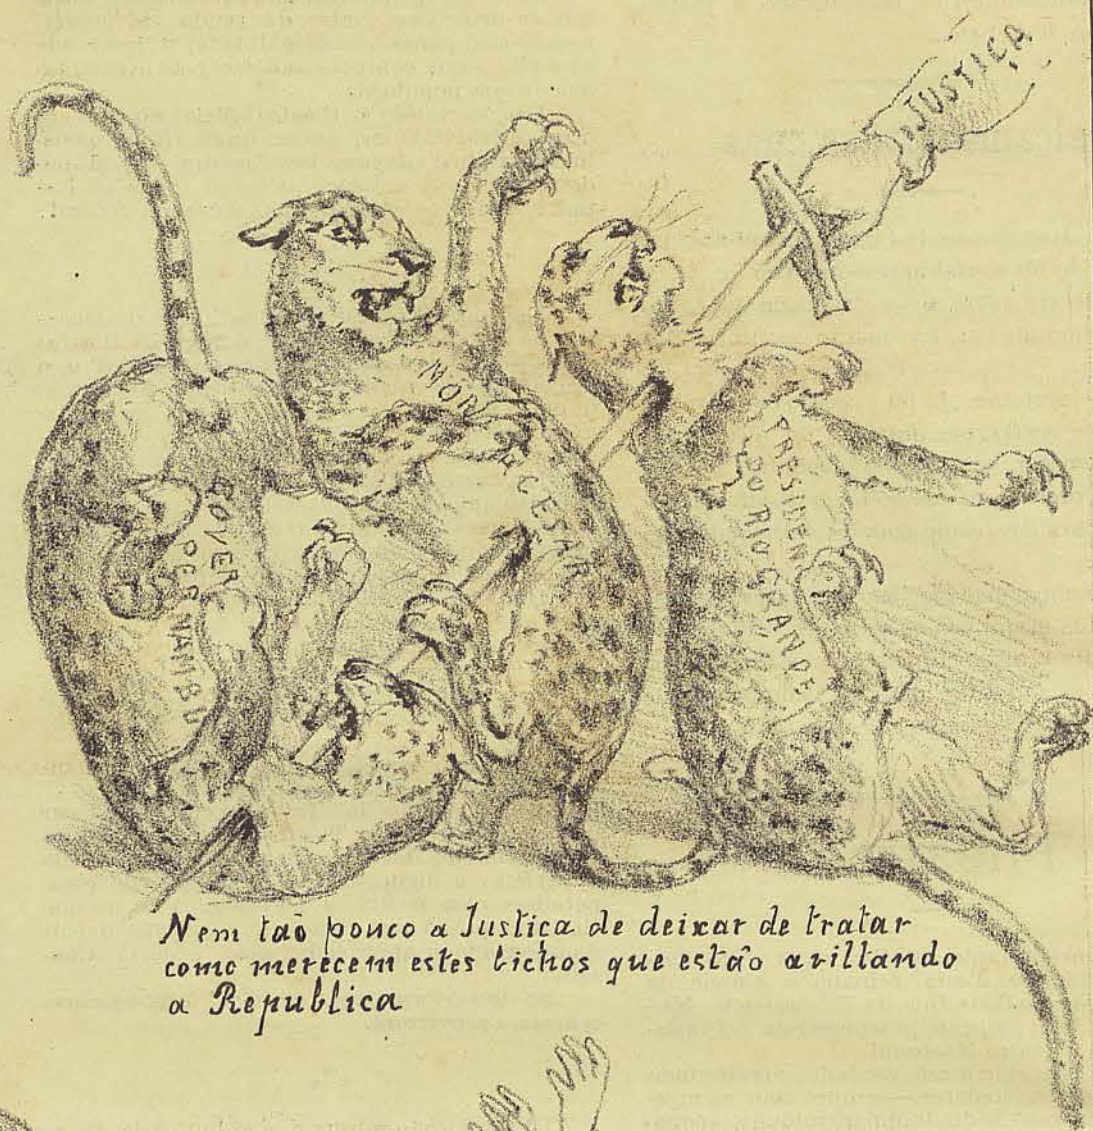 JUSTIÇA
MOR
A CESAR
GOVER
PERNAMBU
PRESIDEN
DO RIO GRANDE
Nem taō pouco a Justiça de deixar de tratar
como merecem estes bichos que estão aviltando
a Republica